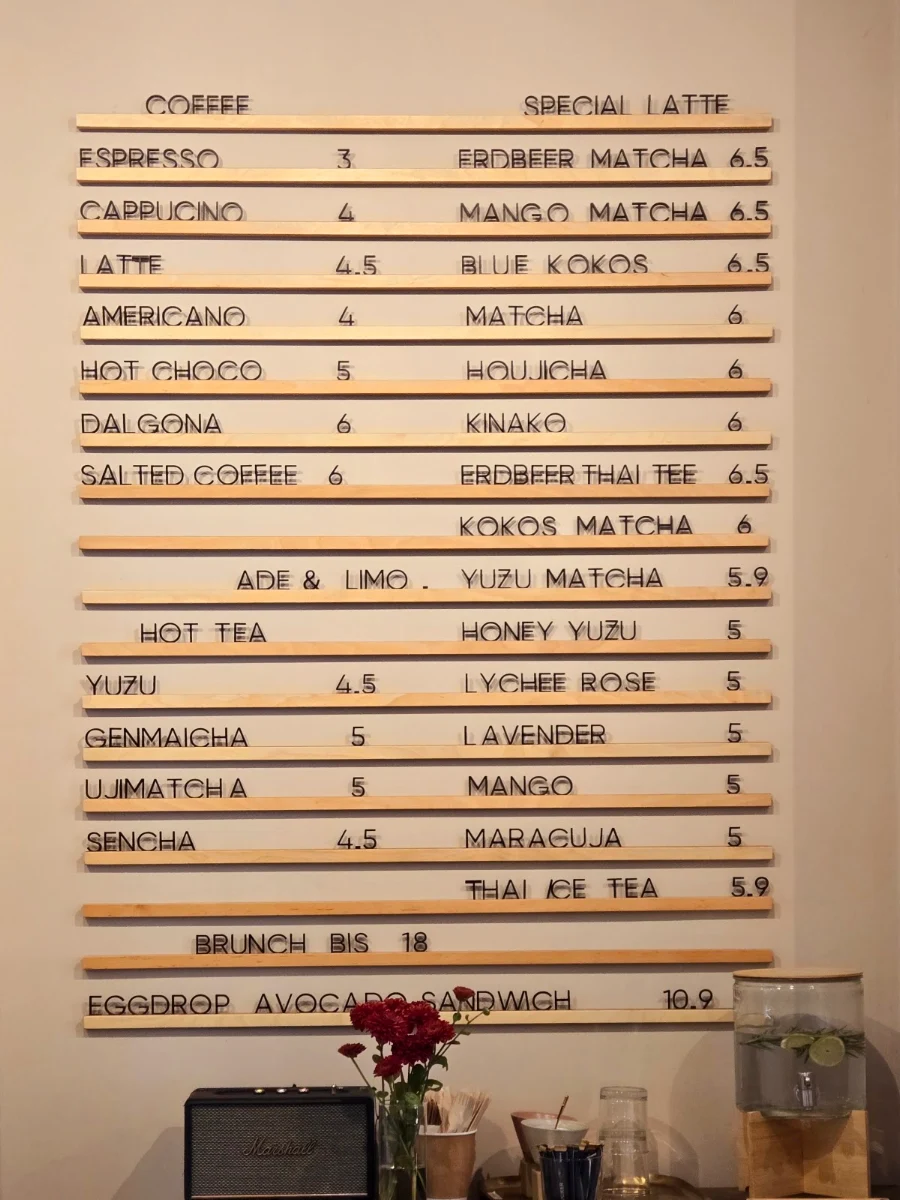 COFFEE SPECIAL LATTE
ESPRESSO 3 ERDBEER MATCHA 6.5
CAPPUCINO 4 MANGO MATCHA 6.5
LATTE 4.5 BLUE KOKOS 6.5
AMERICANO 4 MATCHA 6
HOT CHOCO 5 HOUJICHA 6
DALGONA 6 KINAKO 6
SALTED COFFEE 6 ERDBEER THAI TEE 6.5
KOKOS MATCHA 6
ADE & LIMO . YUZU MATCHA 5.9
HOT TEA HONEY YUZU 5
YUZU 4.5 LYCHEE ROSE 5
GENMAICHA 5 LAVENDER 5
UJIMATCHA 5 MANGO 5
SENCHA 4.5 MARACUJA 5
THAI ICE TEA 5.9
BRUNCH BIS 18
EGGDROP AVOCADO SANDWICH 10.9
Marshall